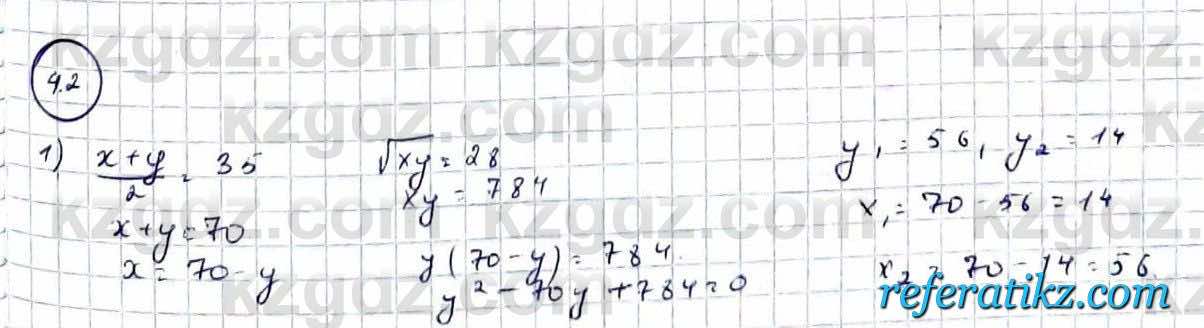 kzgdz.com kzgdz.com kzgdz.com
4.2
kzgdz.com kzgdz.com
1) (x+y)/2 = 35
x+y=70
x = 70-y
√xy = 28
xy = 784
y(70-y) = 784.
y² - 70y + 784 = 0
y₁ = 56, y₂ = 14
x₁ = 70 - 56 = 14
x₂ = 70 - 14 = 56.
kzgdz.com kzgdz.com kzgdz.com
kzgdz.com kzgdz.com
referatikz.com